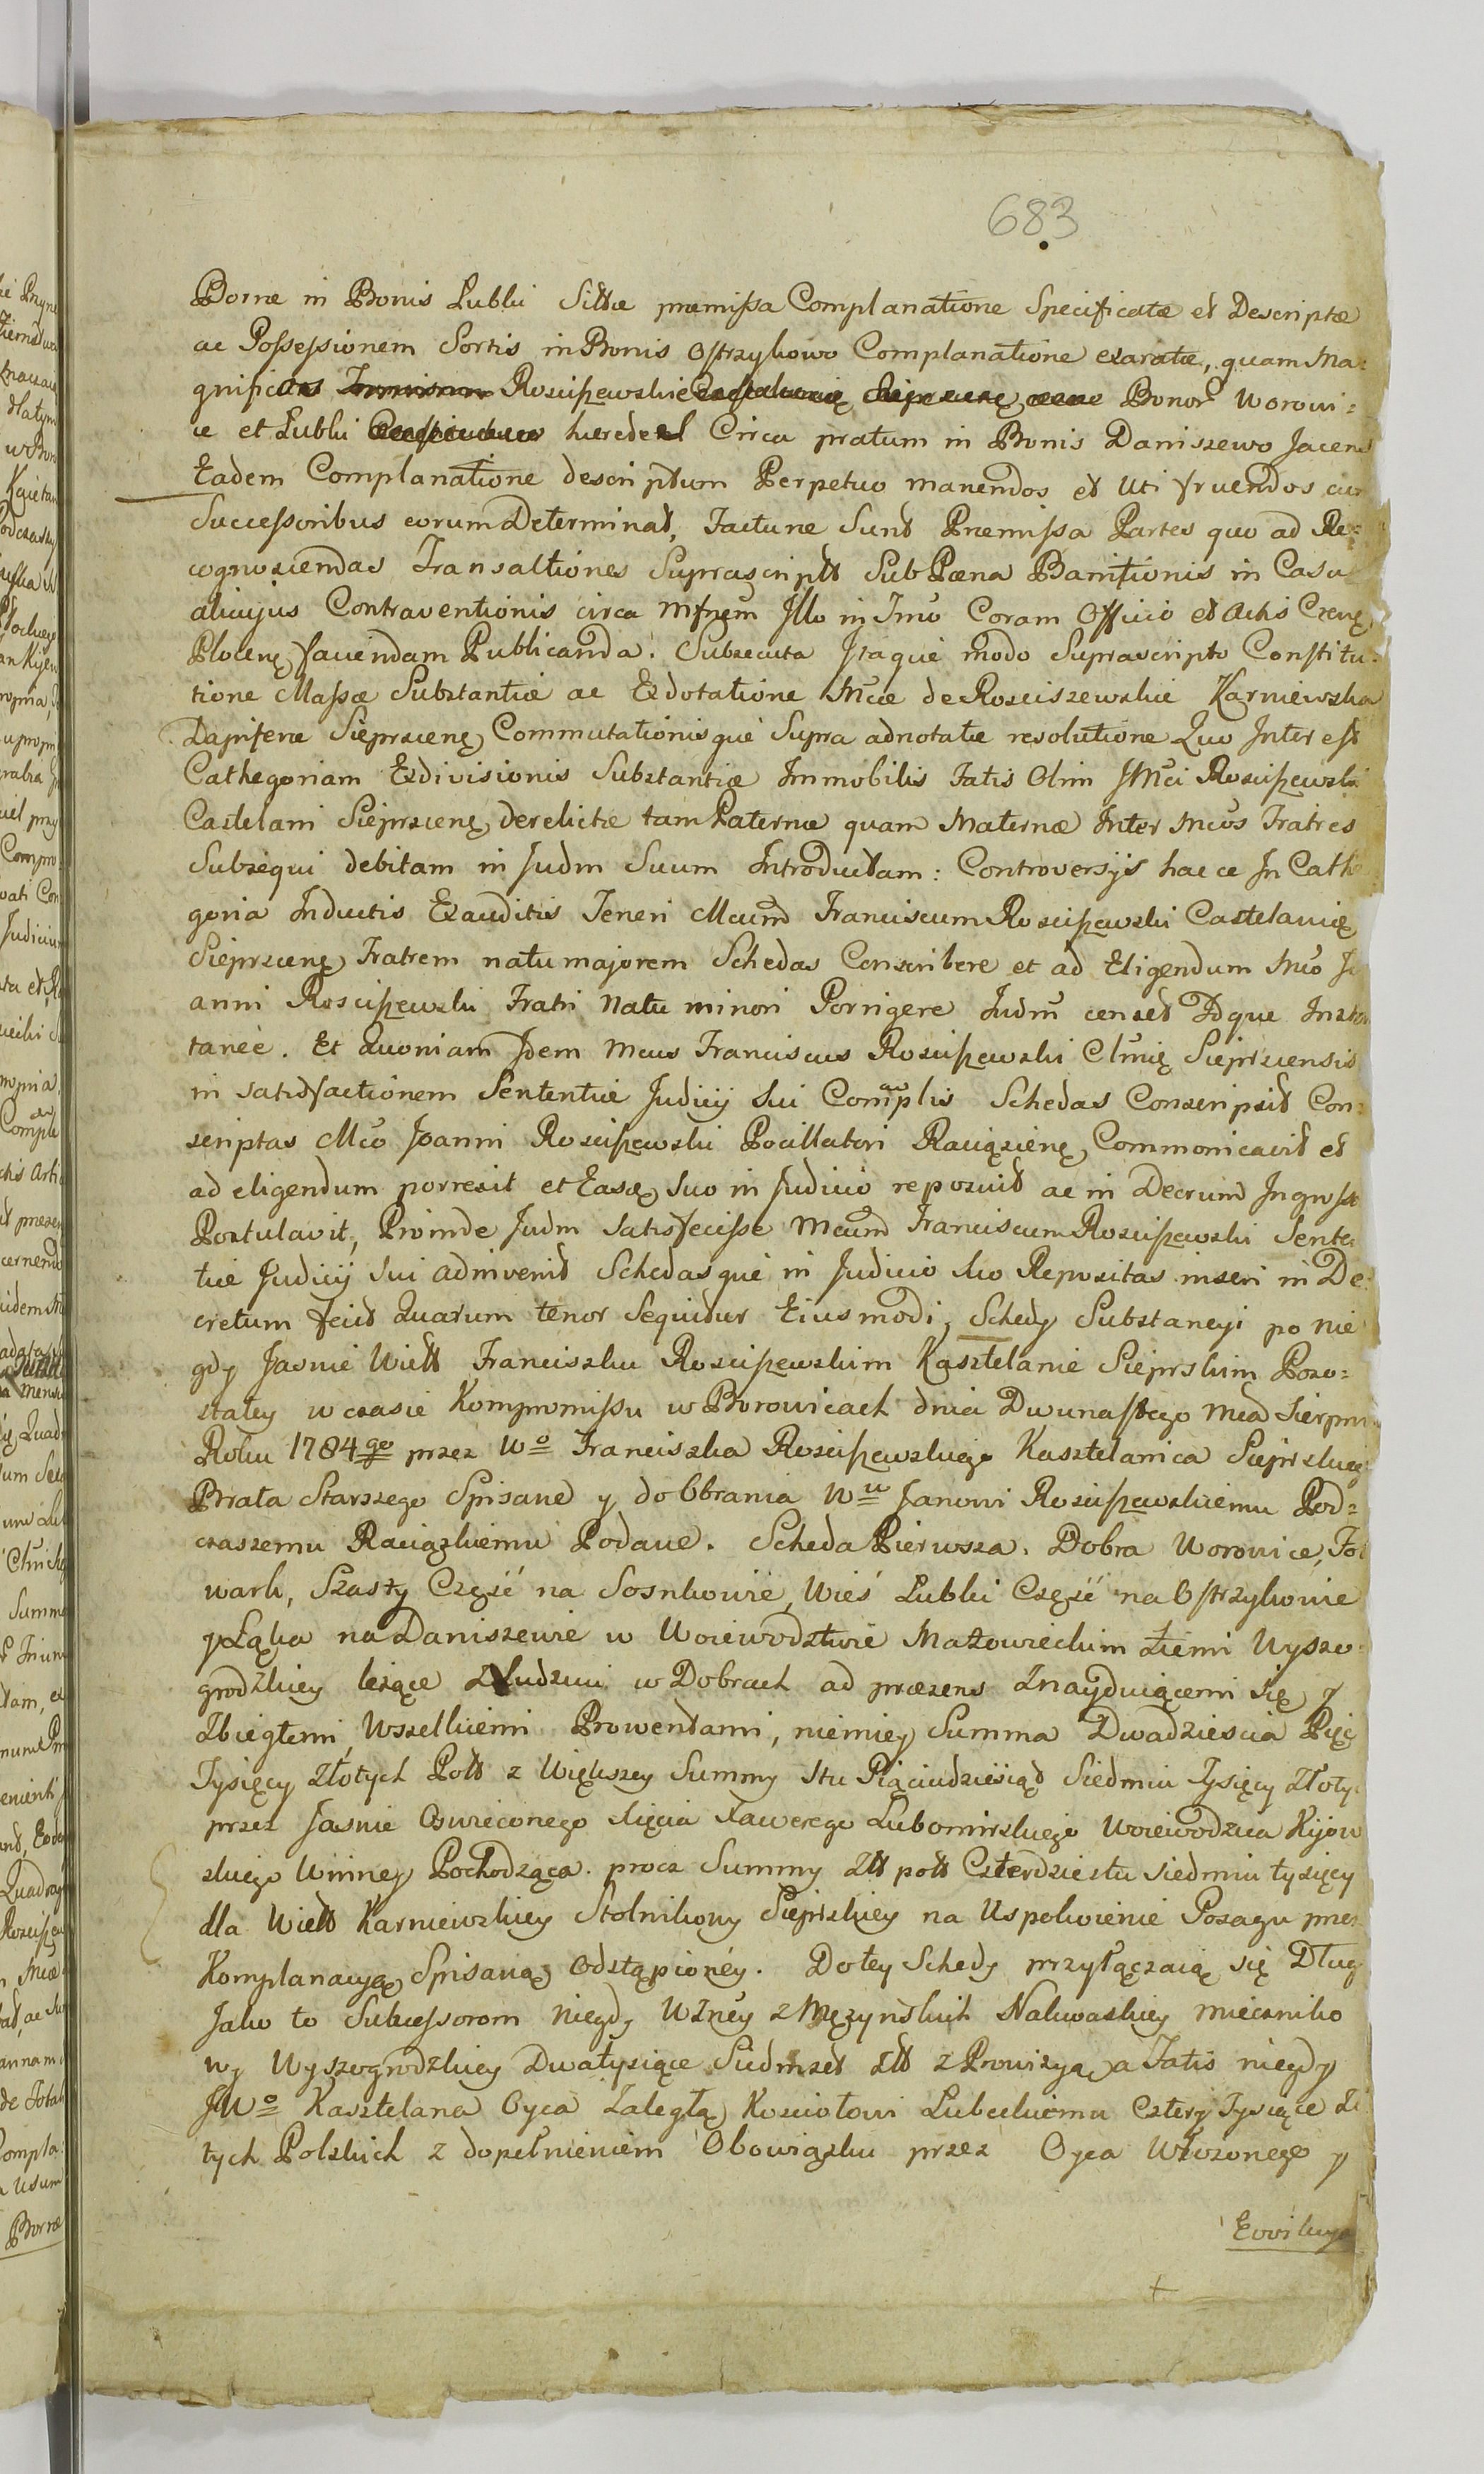 683
Borræ in Bonis Lubki Sittæ præmissa Complanatione Specificatæ et Descriptæ
ac Possessionem Sortis in Bonis Ostrzykowo Complanatione exaratæ, quam Ma=
gnificos Rosciszewskie Bonor Worowi=
ce et Lubki heredes Circa pratum in Bonis Daniszewo Jacens
Eadem Complanatione descriptum Perpetuo manendos et Uti fruendos cum
Successoribus eorum Determinat, Tactæne Sunt Præmissa Partes quo ad Re=
cognoscendas Transactiones Suprascriptt Sub Pæna Bannitionis in Casu
alicujus Contraventionis circa Mfnem Illo in Tmo Coram Officio et Actis Cxenę
Plocenę faciendam Publicanda. Subsecuta Itaque modo Suprascripto Constitu=
tione Massæ Substantiæ ac Exdotatione Mcæ de Rosciszewskie Karniewska
Dapiferæ Sieprscenę Commutationisque Supra adnotatæ resolutione Quo Interest
Cathegoriam Exdivisionis Substantiæ Immobilis Fatis Olim JMci Rosciszewski
Castelani Sieprscenę derelictæ tam Paternæ quam Maternæ Inter Mcos Fratres
Subsequi debitam in Judm Suum Introductam: Controversijs hac ce In Cathe
goria Inductis Exauditis Teneri Mcum Franciscum Rosciszewski Castelanię
Sieprscenę Fratrem natu majorem Schedas Conscribere et ad Eligendum Mco Jo
anni Rosciszewski Fratri Natu minori Porrigere Judm censet Idque Instan
taneè. Et Quoniam Idem Mcus Franciscus Rosciszewski Ctlnię Sieprscensis
in satisfactionem Sententiæ Judicij sui Complis Schedas Conscripsit Con=
scriptas Mco Joanni Rosciszewski Pocillatori Raciąscenę Commonicavit et
ad eligendum porrexit et Easq suo in Judicio reposuit ac in Decrum Ingross
Postulavit, Proinde Judm satisfecisse Mcum Franciscum Rosciszewski Senten
tiæ Judicij sui adinvenit Schedasque in Judicio suo Repositas inseri in De=
cretum fecit Quarum tenor Sequitur Eiusmodi, Schedy Substancyi po nie
gdy Jasnie Wiell Franciszku Rosciszewskim Kasztelanie Sieprskim Pozo=
stałey w czasie Kompromissu w Borowicach dnia Dwunastego Mca Sierpnia
Roku 1784go przez Wo Franciszka Rosciszewskiego Kasztelanica Sieprskieg
Brata Starszego Spisane y do Obrania Wu Janowi Rosciszewskiemu Pod=
czaszemu Raciązkiemu Podane. Scheda Pierwsza. Dobra Worowice, Fol
wark, Szasty Część na Sosnkowie, Wieś Lubki Część na Ostrzykowie
y Łąka na Daniszewie w Woiewodztwie Mazowieckim Ziemi Wyszo=
grodzkiey leżące z Ludzmi w Dobrach ad præsens znayduiącemi się y
Zbiegłemi, Wszelkiemi Prowentami, niemiey Summa Dwadziescia Pięć
Tysięcy Złotych Poll z Większey Summy Stu Pięciudziesiąt Siedmiu Tysięcy Złoty
przez Jasnie Oswieconego xięcia Xawerego Lubomirskiego Woiewodzica Kijow
skiego Winney Pochodząca. procz Summy Złł poll Czterdziestu siedmiu tysięcy
dla Wiell Karniewskiey Stolnikowy Sieprskiey na Uspokoienie Posagu przez
Komplanacyą Spisaną Odstąpionéy. Do tey Schedy przyłączaią się Długi
Jako to Sukcessorom Niegdy Wżney z Mężynskich Nakwaskiey Mieczniko
wy Wyszogrodzkiey Dwa tysiące Siedmset złł z Prowizyą, a Fatis niegdy
JWo Kasztelana Oyca Zaległą, Kosciołowi Lubeckiemu Cztery Tysiące Zło
tych Polskich z dopełnieniem Obowiązku przez Oyca Włożonego y
Ewikcya